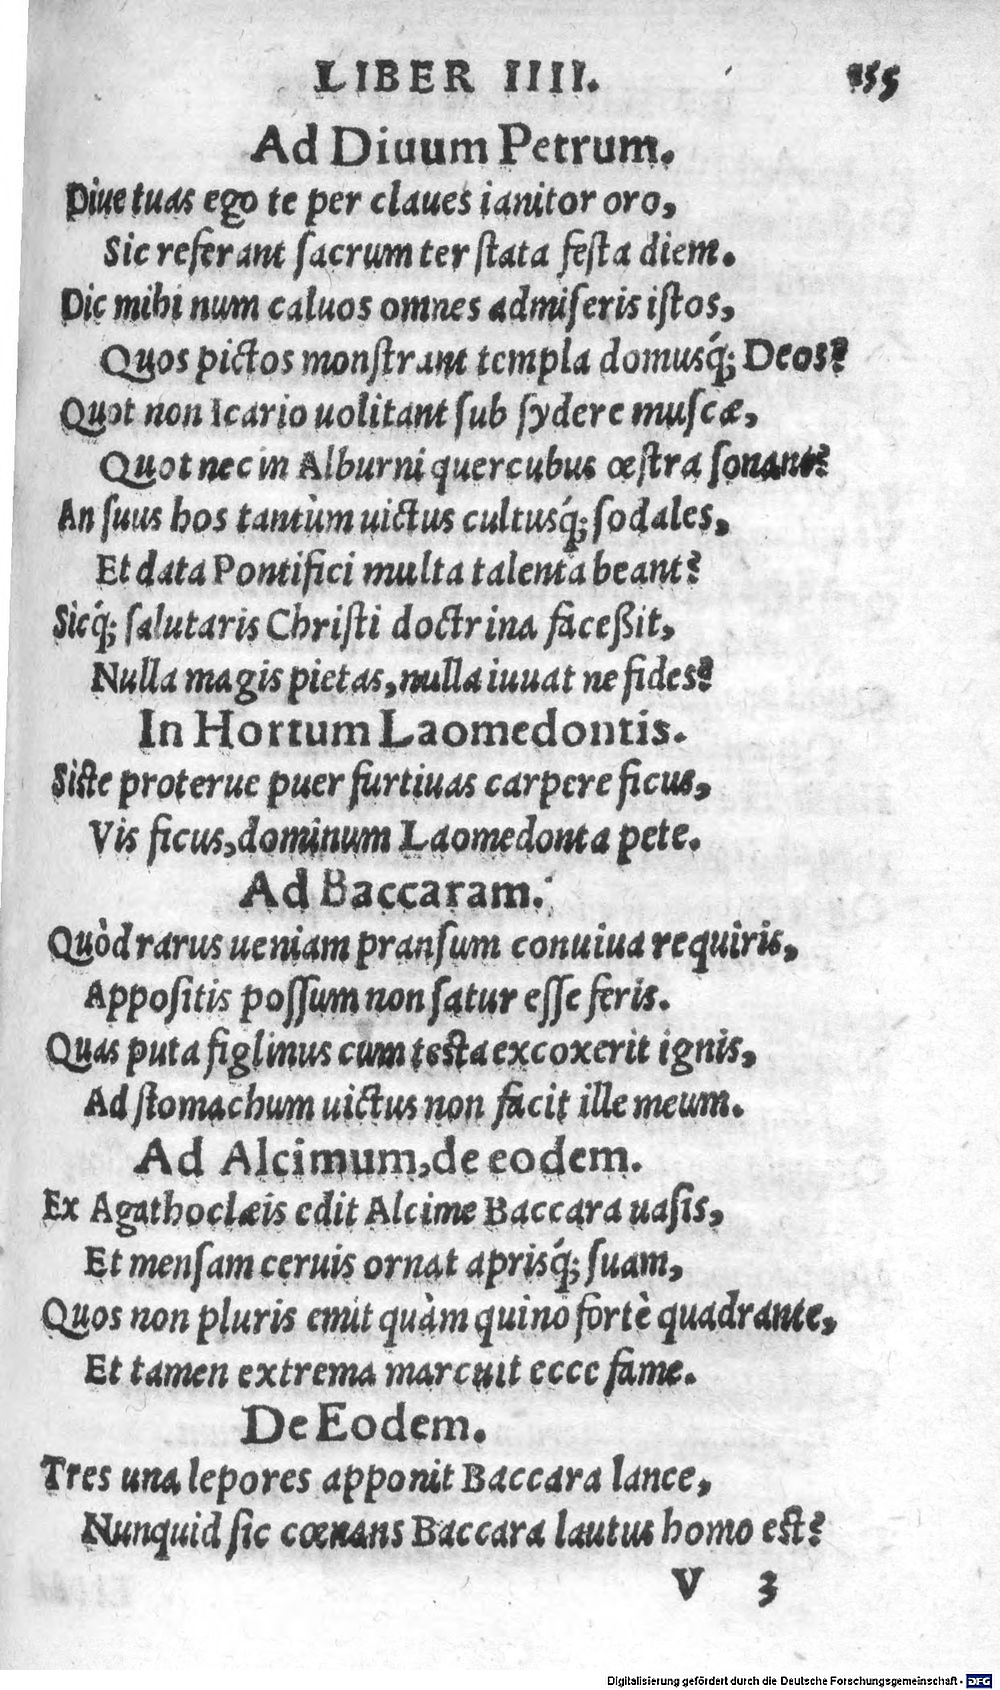 LIBER IIII. 155
Ad Diuum Petrum.
Diue tuas ego te per claues ianitor oro,
Sic referant ſacrum ter ſtata feſta diem.
Dic mihi num caluos omnes admiſeris iſtos,
Quos pictos monſtrant templa domusq́; Deos?
Quot non Icario uolitant ſub ſydere muſcæ,
Quot nec in Alburni quercubus œſtra ſonant?
An ſuus hos tantùm uictus cultusq́; ſodales,
Et data Pontifici multa talenta beant?
Sicq́; ſalutaris Chriſti doctrina faceßit,
Nulla magis pietas, nulla iuuat ne fides?
In Hortum Laomedontis.
Siſte proterue puer furtiuas carpere ficus,
Vis ficus, dominum Laomedonta pete.
Ad Baccaram.
Quòd rarus ueniam pranſum conuiua requiris,
Appoſitis poſſum non ſatur eſſe feris.
Quas puta figlinus cum teſta excoxerit ignis,
Ad ſtomachum uictus non facit ille meum.
Ad Alcimum, de eodem.
Ex Agathoclæis edit Alcime Baccara uaſis,
Et menſam ceruis ornat aprisq́; ſuam,
Quos non pluris emit quàm quino fortè quadrante,
Et tamen extrema marcuit ecce fame.
De Eodem.
Tres una lepores apponit Baccara lance,
Nunquid ſic cœnans Baccara lautus homo eſt?
V 3
Digitalisierung gefördert durch die Deutsche Forschungsgemeinschaft - DFG